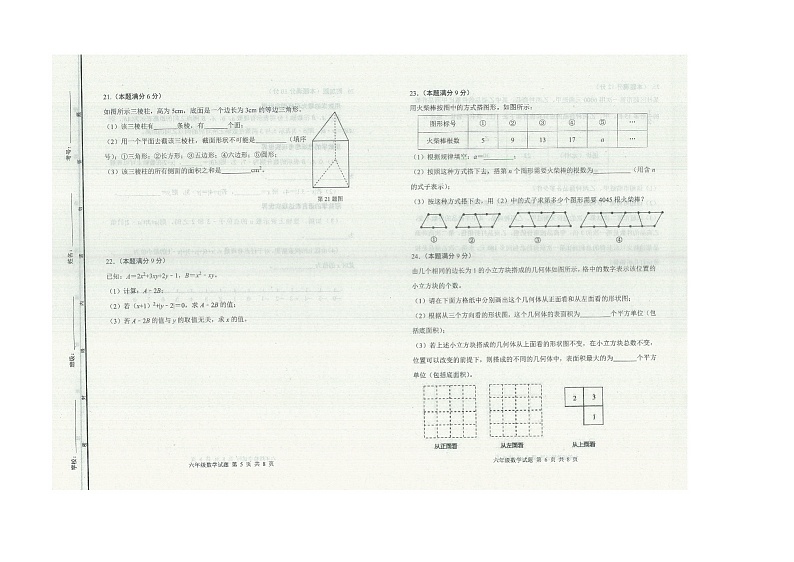 21.（本题满分 6 分）
如图所示三棱柱，高为 5cm，底面是一个边长为 3cm 的等边三角形。
（1）该三棱柱有______条棱，有______个面；
（2）用一个平面去截该三棱柱，截面形状不可能是________（填序
号）；①三角形；②长方形；③五边形；④六边形；⑤圆形；
（3）该三棱柱的所有侧面的面积之和是________cm²．
第 21 题图
22.（本题满分 9 分）
已知：A＝2x²+3xy+2y﹣1，B＝x²﹣xy．
（1）计算：A﹣2B；
（2）若（x+1）²+|y﹣2|=0，求 A﹣2B 的值；
（3）若 A﹣2B 的值与 y 的取值无关，求 x 的值。
六年级数学试题 第 5 页 共 8 页
考号：
姓名：
班级：
学校：
23.（本题满分 9 分）
用火柴棒按图中的方式搭图形。如图所示：
图形标号 ① ② ③ ④ ⑤ …
火柴棒根数 5 9 13 17 a …
（1）根据规律填空：a＝________；
（2）按照这种方式搭下去，搭第 n 个图形需要火柴棒的根数为________（用含 n
的式子表示）；
（3）按这种方式搭下去，用（2）中的式子求第多少个图形需要 4045 根火柴棒？
① ② ③ ④
24.（本题满分 9 分）
由几个相同的边长为 1 的小立方块搭成的几何体如图所示，格中的数字表示该位置的
小立方块的个数。
（1）请在下面方格纸中分别画出这个几何体从正面看和从左面看的形状图；
（2）根据从三个方向看的形状图，这个几何体的表面积为________个平方单位（包
括底面积）；
（3）若上述小立方块搭成的几何体从上面看的形状图不变，在小立方块总数不变，
位置可以改变的前提下，则搭成的不同的几何体中，表面积最大的为______个平方
单位（包括底面积）。
2 3
1
从正面看 从左面看 从上面看
六年级数学试题 第 6 页 共 8 页